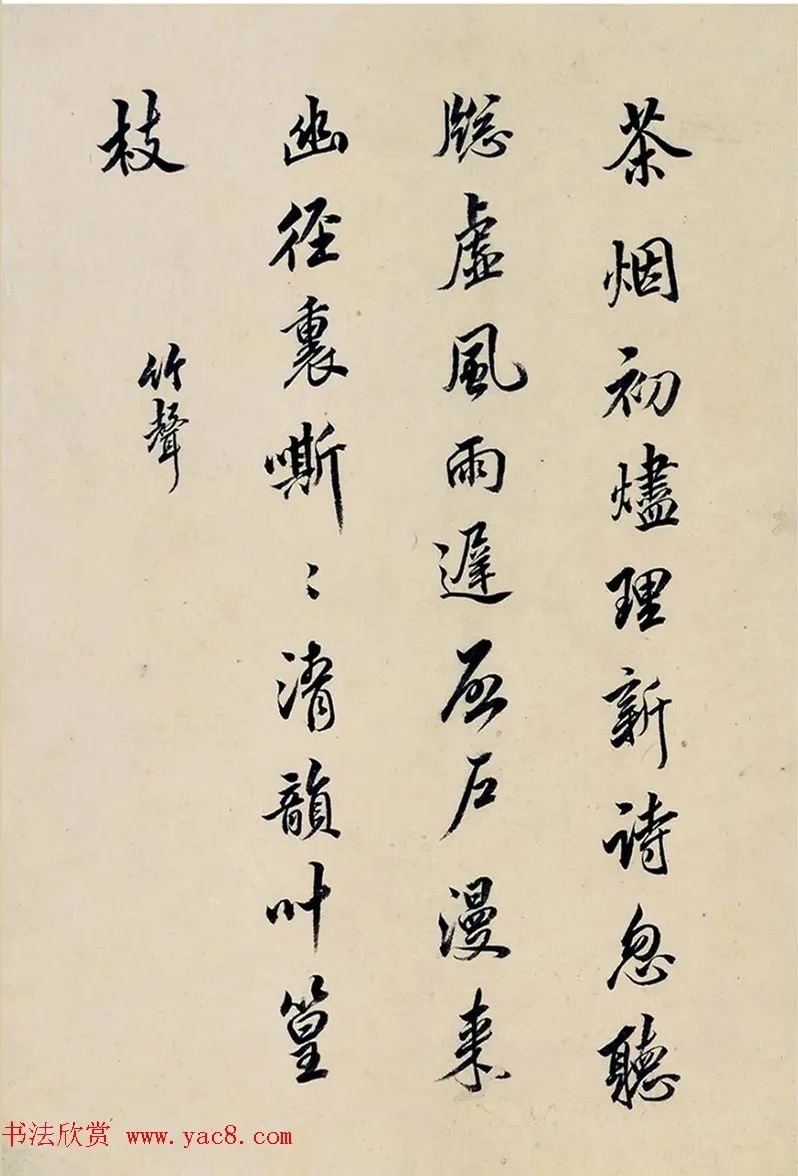 茶烟初燼理新诗忽聽
牕虚風雨遲石漫来
幽径裏嘶〻清韻叶篁
枝
竹聲
书法欣赏 www.yac8.com